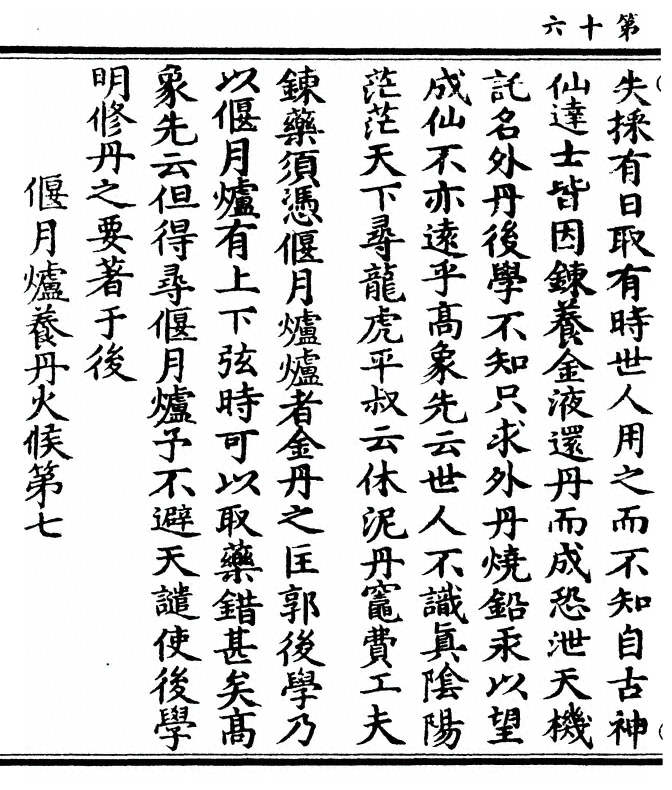 第十六
失採有日取有時世人用之而不知自古神
仙達士皆因鍊養金液還丹而成恐泄天機
託名外丹後學不知只求外丹燒鉛汞以望
成仙不亦遠乎高象先云世人不識真陰陽
茫茫天下尋龍虎平叔云休泥丹竈費工夫
鍊藥須憑偃月爐爐者金丹之匡郭後學乃
以偃月爐有上下弦時可以取藥錯甚矣高
象先云但得尋偃月爐予不避天譴使後學
明修丹之要著于後
偃月爐養丹火候第七